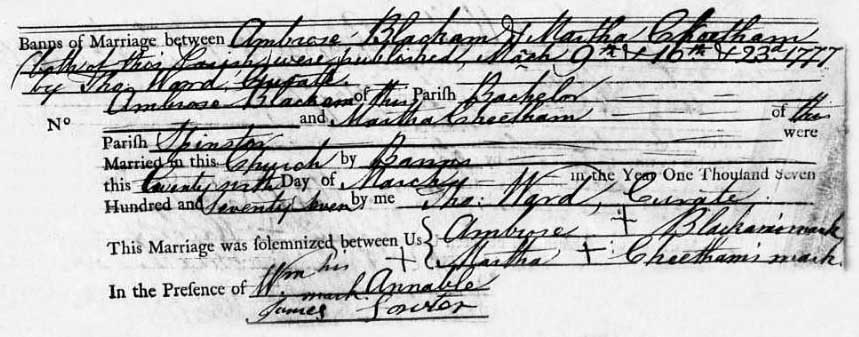 Banns of Marriage between Ambrose Blackam & Martha Cheetham
(both of this Parish) were published, March 9th & 16th & 23d 1777
by Tho. Ward, Curate.
Ambrose Blackam of this Parish Bachelor
No and Martha Cheetham of this
Parish Spinster were
Married in this Church by Banns
this twenty ninth Day of March in the Year One Thousand Seven
Hundred and Seventy Seven by me Tho: Ward, Curate,
This Marriage was solemnized between Us { Ambrose + Blackam's mark
Martha + Cheetham's mark.
In the Presence of Wm his + mark Annable
James Lowter